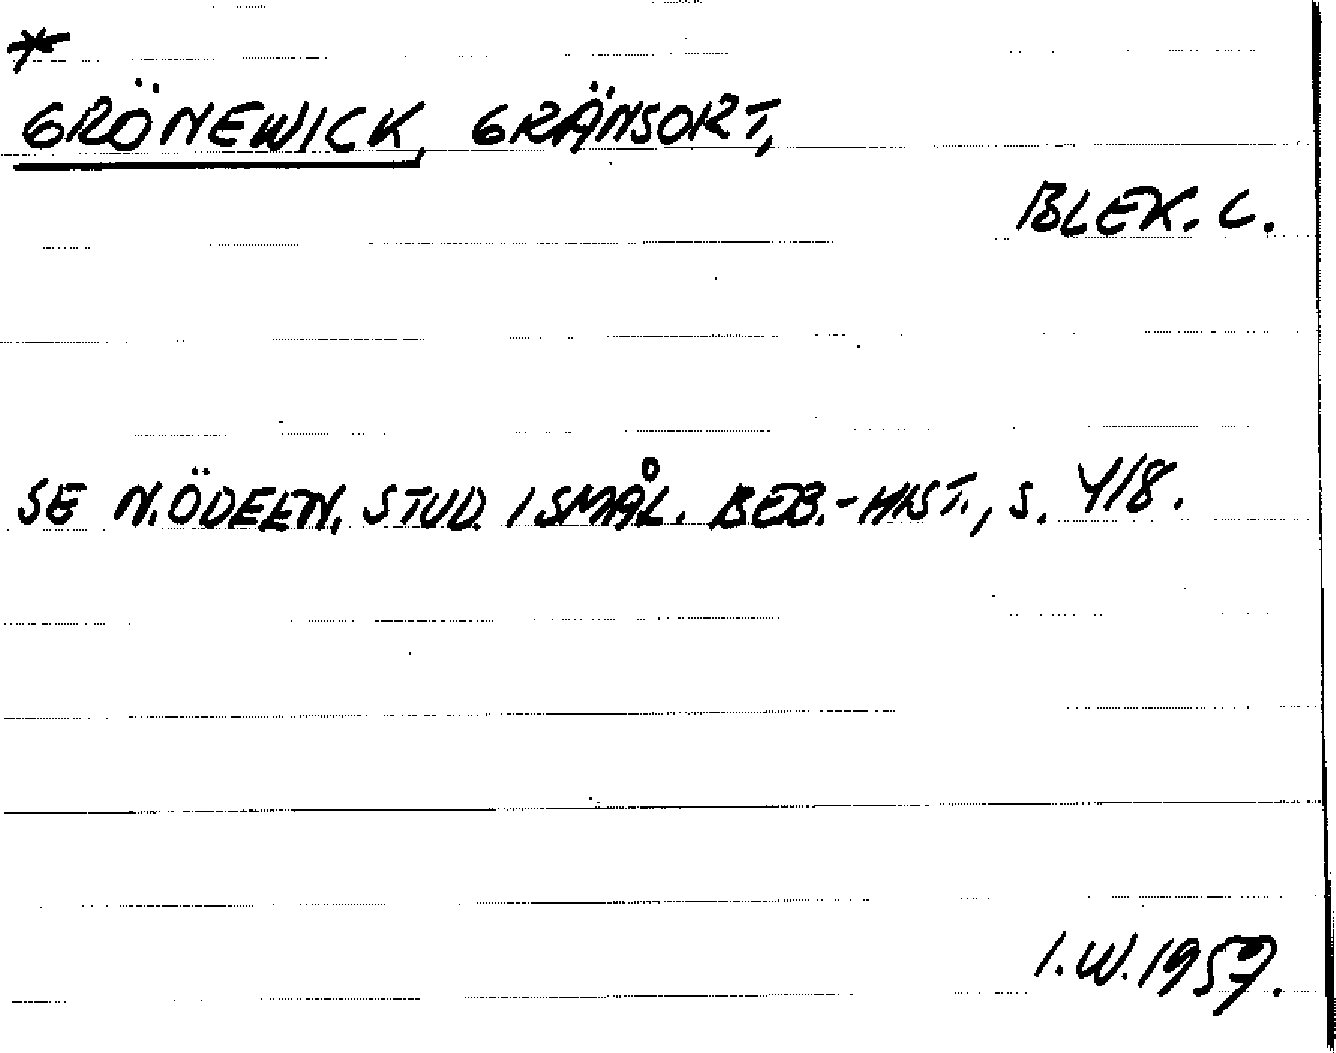 *
GRÖNEWICK, GRÄNSORT,
BLEK. L.
SE N. ÖDEEN, STUD. I SMÅL. BEB.-HIST., S. 418.
I.W. 1957.